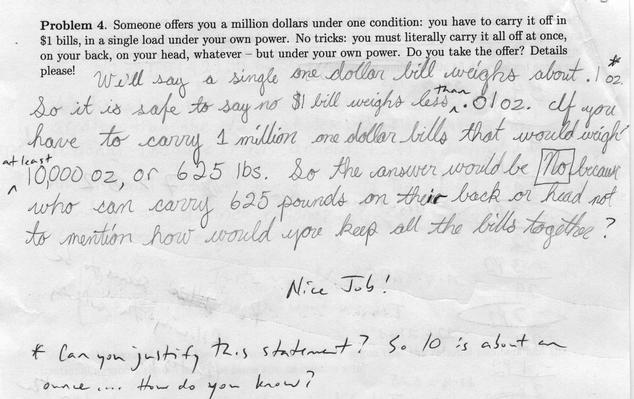 Problem 4. Someone offers you a million dollars under one condition: you have to carry it off in
$1 bills, in a single load under your own power. No tricks: you must literally carry it all off at once,
on your back, on your head, whatever – but under your own power. Do you take the offer? Details
please!
We'll say a single one dollar bill weighs about .1 oz.*
So it is safe to say no $1 bill weighs less than .01 oz. If you
have to carry 1 million one dollar bills that would weigh
at least 10,000 oz, or 625 lbs. So the answer would be No because
who can carry 625 pounds on their back or head not
to mention how would you keep all the bills together?
Nice Job!
* Can you justify this statement? So 10 is about an
ounce.... How do you know?